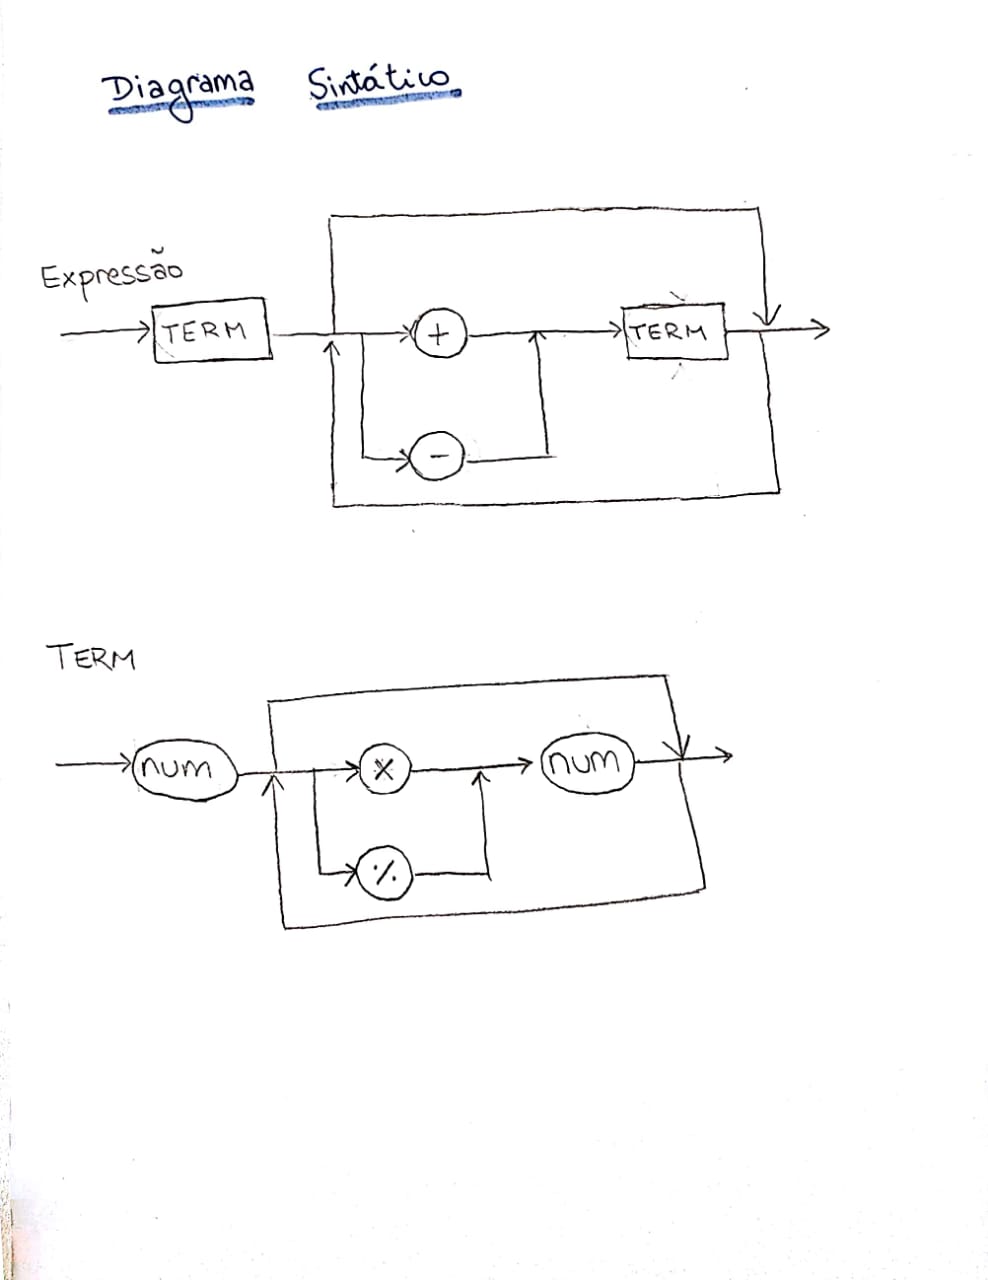 Diagrama Sintático
Expressão
TERM + TERM
-
TERM
num × num
%